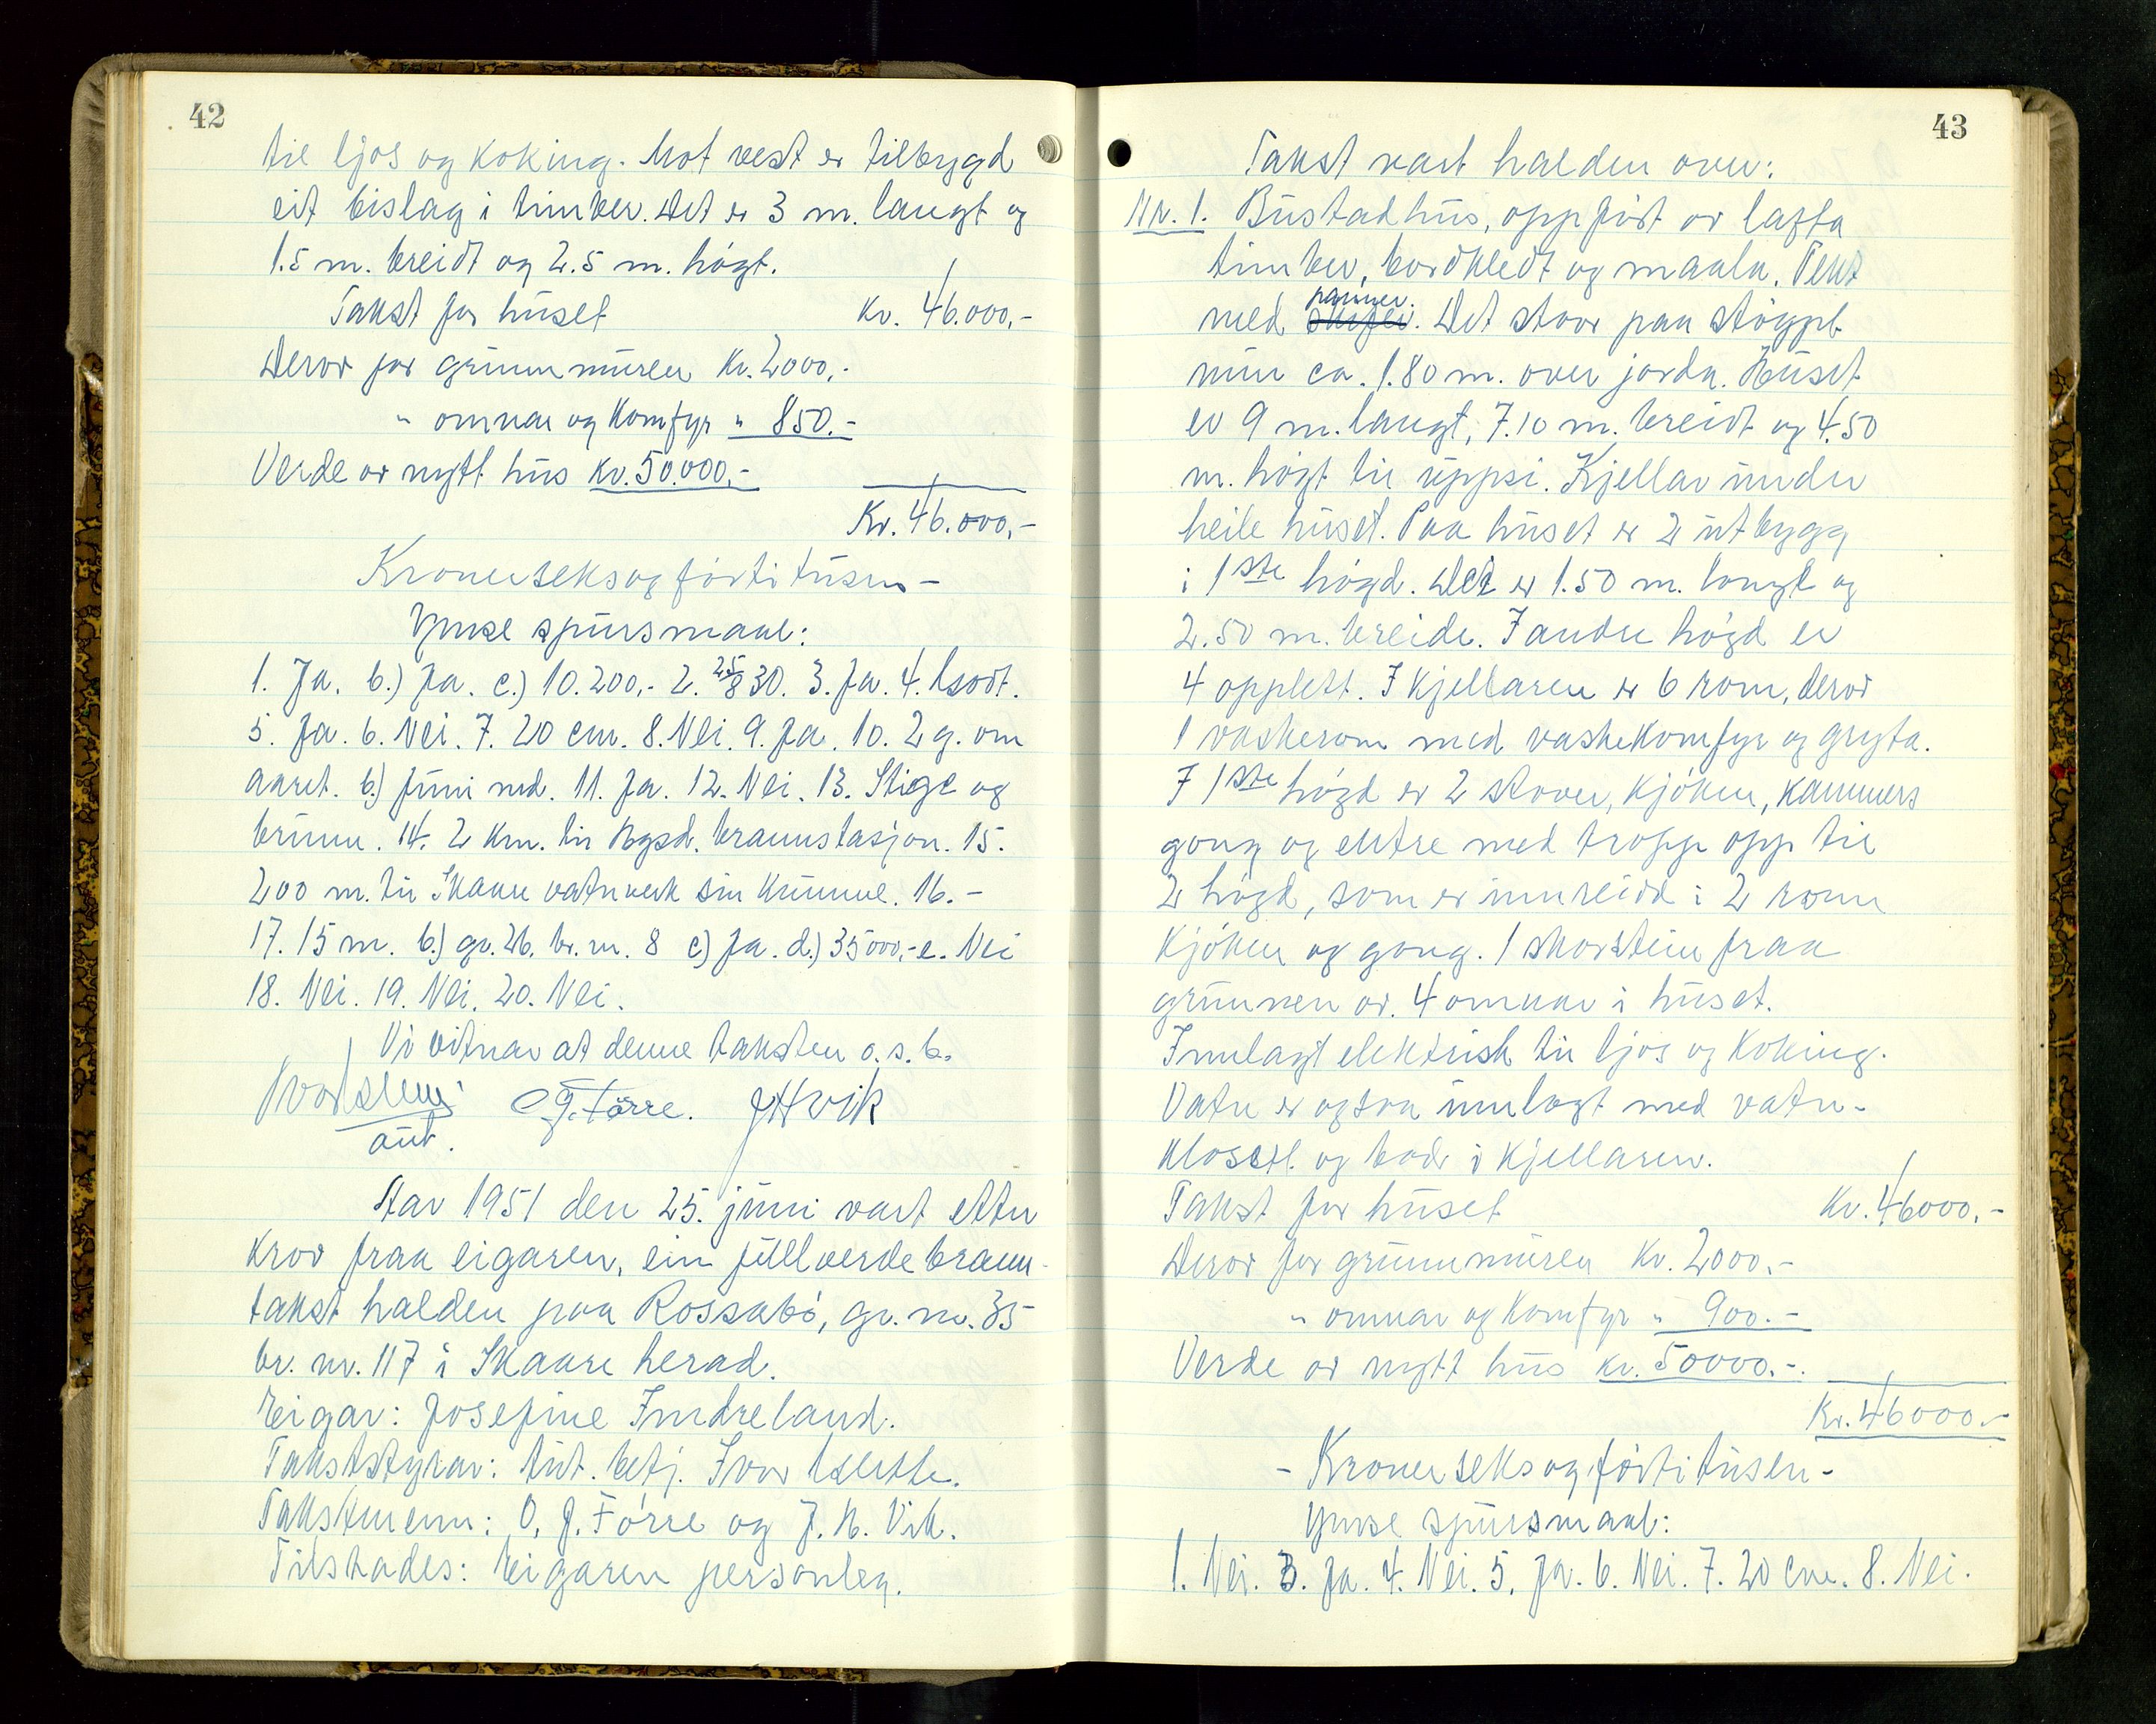 42
til ljos og koking. Mot vest er tilbygd
eit bislag i timber. Det er 3 m. langt og
1.5 m. breidt og 2.5 m. högt.
Takst for huset Kr. 46.000,-
Derav for grunnmuren Kr. 2000,-
" omnar og Komfyr " 850.-
Verde av nytt hus Kr. 50.000,-
Kr. 46.000,-
Kroner seksogförtitusen-
Ymse spursmaal:
1. Ja. b.) Ja. c.) 10.200,- 2. 25/8 30. 3. Ja. 4.
5. Ja. 6. Nei. 7. 20 cm. 8. Nei. 9. Ja. 10. 2 g. om
aaret. b.) Juni md. 11. Ja. 12. Nei. 13. Stige og
brunn. 14. 2 Km. til Hgsd. brannstasjon. 15.
200 m. til Skaare vatnverk sin Kumme. 16. -
17. 15 m. b.) gr. 26. br. nr. 8 c) Ja. d.) 35000,- e. Nei
18. Nei. 19. Nei. 20. Nei.
Vi vitnar at denne taksten o. s. b.
O. J. Förre. J H Vik
aut.
Aar 1951 den 25. juni vart etter
Krav fraa eigaren, ein fullverde brann-
takst halden paa Rossabö, gr. nr. 35
br. nr. 117 i Skaare herad.
Eigar: Josefine Indreland.
Takststyrar: aut. betj. Ivar
Takstmenn: O. J. Förre og J. H. Vik.
Tilstades: Eigaren personleg.
43
Takst vart halden over:
Nr. 1. Bustadhus, oppfört av lafta
timber, bordkledt og maala. Tekt
panner.
med skifer. Det staar paa stöypt
mur ca. 1.80 m. over jorda. Huset
er 9 m. langt, 7.10 m. breidt og 4.50
m. högt til uppsi. Kjellar under
heile huset. Paa huset er 2 utbygg
i 1ste högd. Det er 1.50 m. langt og
2.50 m. breide. I andre högd er
4 opplett. I Kjellaren er 6 rom, derav
1 vaskerom med vaskekomfyr og gryta.
I 1ste högd er 2 stover, Kjöken, Kammers
gong og entre med tropp opp til
2 högd, som er innreidd i 2 rom
Kjöken og gong. 1 skorstein fraa
grunnen av. 4 omnar i huset.
Innlagt elektrisk til ljos og Koking.
Vatn er ogsaa innlagt med vatn-
klosett og bad i Kjellaren.
Takst for huset Kr. 46000,-
Derav for grunnmuren Kr. 2000.-
" omnar og Komfyr " 900.-
Verde av nytt hus Kr. 50000.-
Kr. 46000.-
- Kroner seksogförtitusen -
Ymse spursmaal:
1. Nei. 3. Ja. 4. Nei. 5. Ja. 6. Nei. 7. 20 cm. 8. Nei.